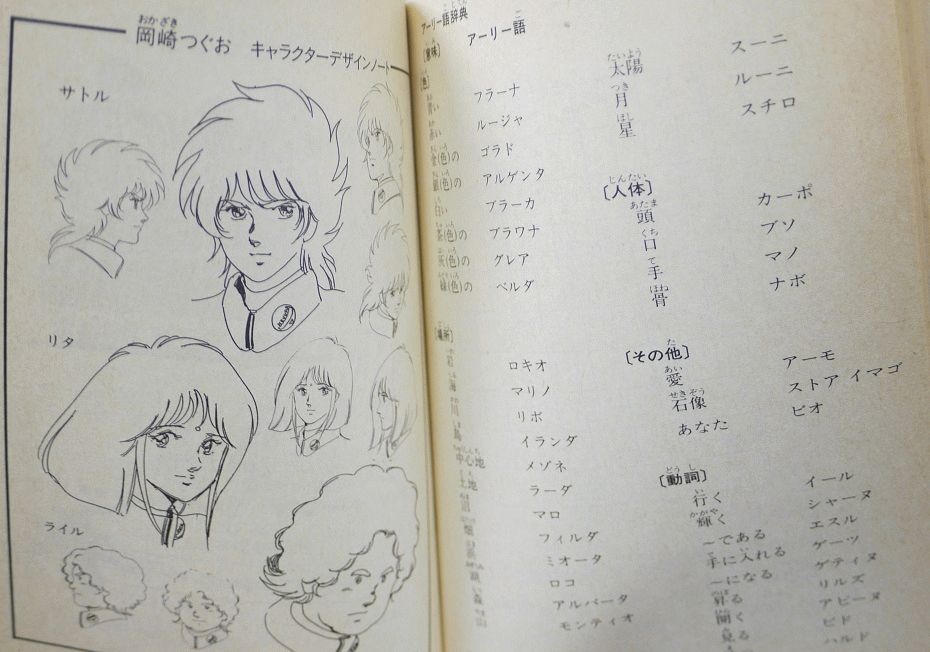 岡崎つぐお キャラクターデザインノート
サトル
リタ
ライル
アーリー語辞典
〔意味〕 アーリー語
〔色〕
青い フラーナ
赤い ルージャ
金(色)の ゴラド
銀(色)の アルゲンタ
白い ブラーカ
茶(色)の ブラワナ
灰(色)の グレア
緑(色)の ベルダ
〔場所〕
ロキオ
海 マリノ
川 リボ
島 イランダ
中心地 メゾネ
土地 ラーダ
マロ
畑 フィルダ
ミオータ
ロコ
森 アルバータ
モンティオ
太陽 スーニ
月 ルーニ
星 スチロ
〔人体〕
頭 カーポ
口 ブソ
手 マノ
骨 ナボ
〔その他〕
愛 アーモ
石像 ストア イマゴ
あなた ビオ
〔動詞〕
行く イール
輝く シャーヌ
～である エスル
手に入れる ゲーツ
～になる ゲティヌ
昇る リルズ
開く アビーヌ
見る ビド
ハルド